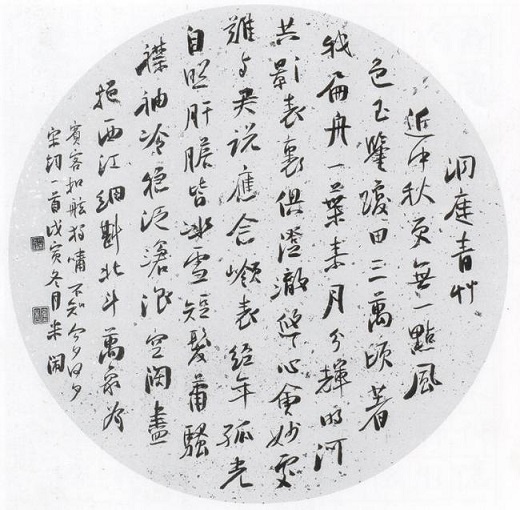 洞庭青艸
近中秋更無一點風
色玉鑒瓊田三萬頃著
我扁舟一葉素月分輝明河
共影表裏俱澄澈悠心會妙處
難与君說應念嶺表經年孤光
自照肝膽皆冰雪短髮蕭騷
襟袖冷穩泛滄浪空闊盡
挹西江細斟北斗萬象為
賓客扣舷獨嘯不知今夕何夕
宋詞一首戊寅冬月